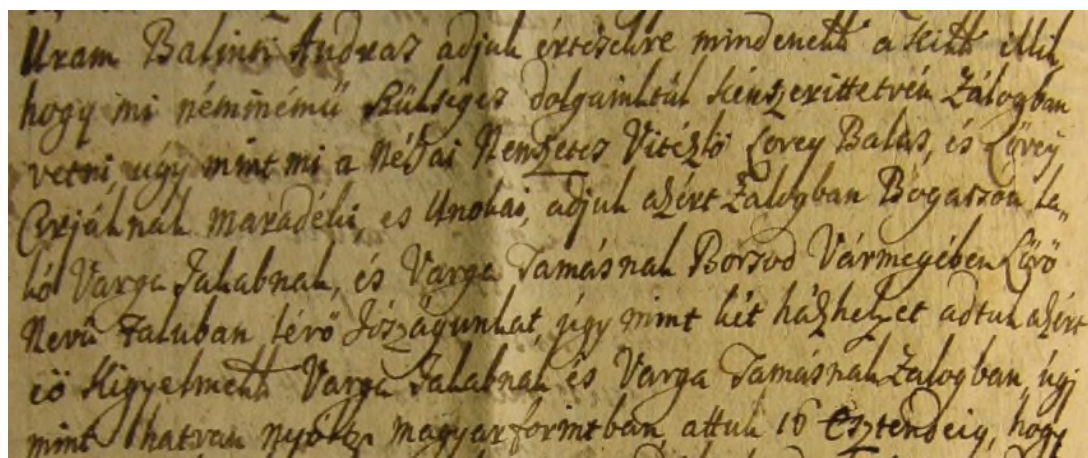 Uram Balinti Andras adjuk értésekre mindeneknek a kiknek illik,
hogy mi néminémű szükséges dolgainktúl kénszerittetvén Zálogban
vetni, úgy mint mi a Néhai Nemzetes Vitézlö Lövey Balas, és Lövey
maradéki, es Unokai, adjuk azért Zálogban Bogatson la„
kó Varga Jakabnak, és Varga Tamásnak Borsod Vármegyében Lövö
Nevű faluban lévö Jószágunkat, úgy mint két házhelyet adtuk azért
eö Kigyelmeknek Varga Jakabnak és Varga Tamásnak Zalogban, úgj
mint hatvan nyoltz magyar forintban, attuk 16 Esztendeig, hogy